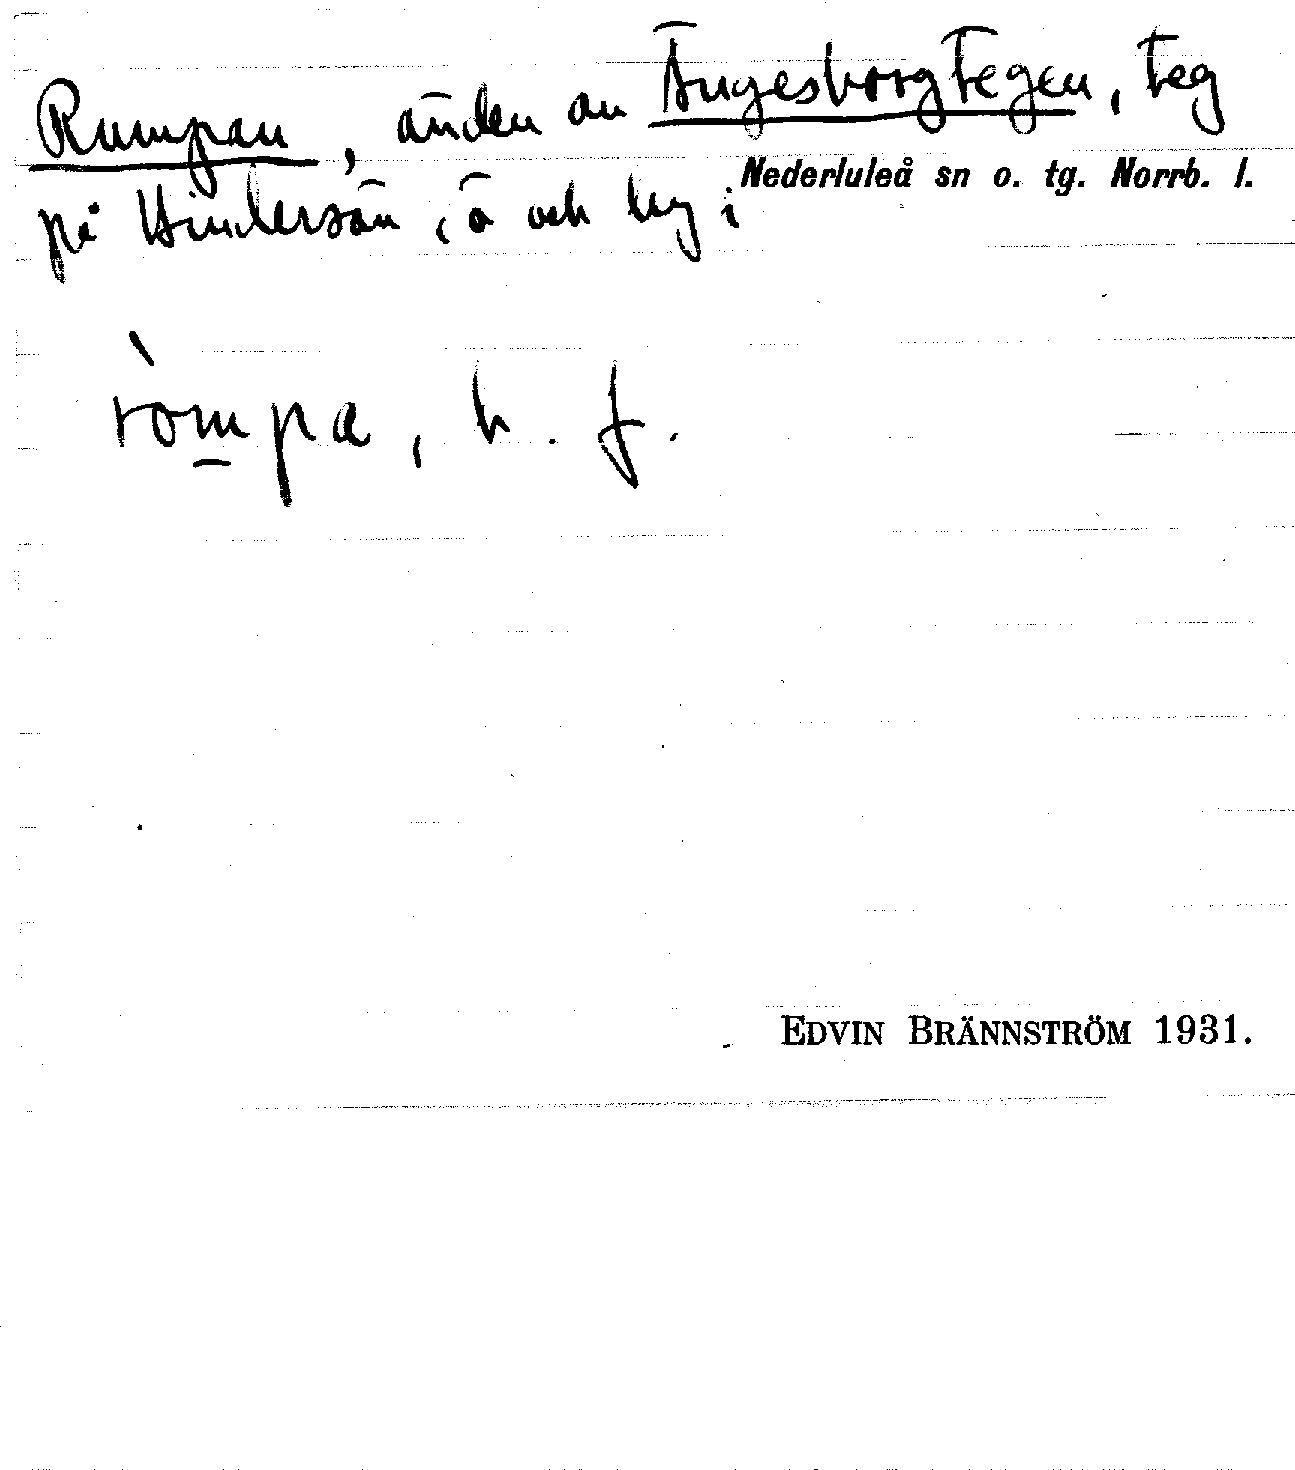 Rumpan, änden av Ängesborgtegen, teg
Nederluleå sn o. tg. Norrb. l.
på Hindersön, ö och by i
ròmpa, b. f.
EDVIN BRÄNNSTRÖM 1931.